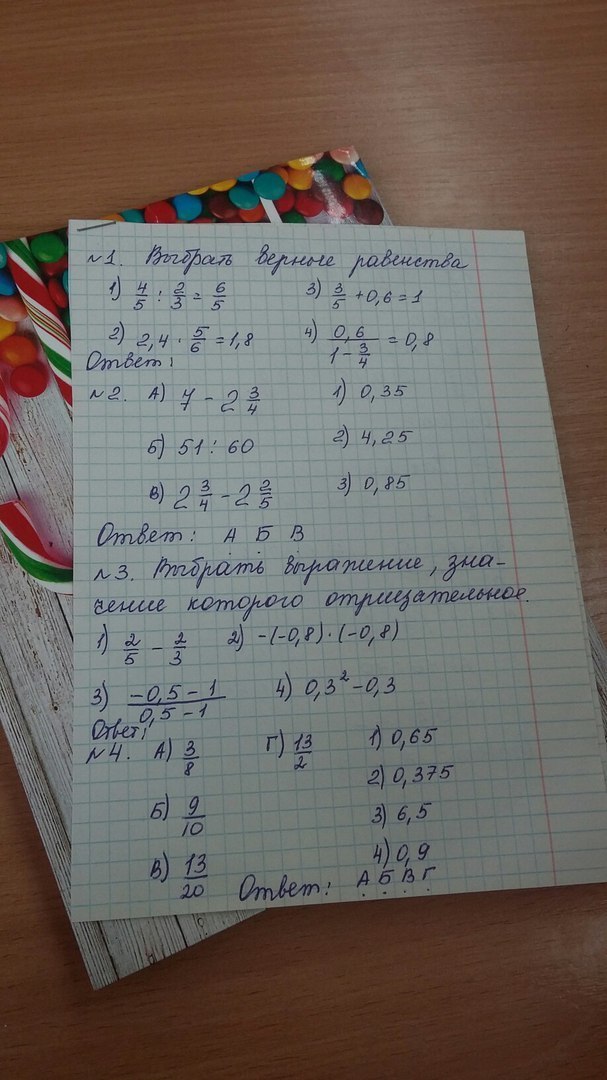 №1. Выбрать верные равенства
1) 4/5 : 2/3 = 6/5 3) 3/5 + 0,6 = 1
2) 2,4 · 5/6 = 1,8 4) 0,6/(1 - 3/4) = 0,8
Ответ:
№2. А) 7/7 - 2 3/4 1) 0,35
Б) 51 : 60 2) 4,25
В) 2 3/4 - 2 2/5 3) 0,85
Ответ: А Б В
№3. Выбрать выражение, зна-
чение которого отрицательное.
1) 2/5 - 2/3 2) -(-0,8)·(-0,8)
3) (-0,5 - 1)/(0,5 - 1) 4) 0,3² - 0,3
Ответ:
№4. А) 3/8 Г) 13/2 1) 0,65
2) 0,375
Б) 9/10 3) 6,5
В) 13/20 4) 0,9
Ответ: А Б В Г